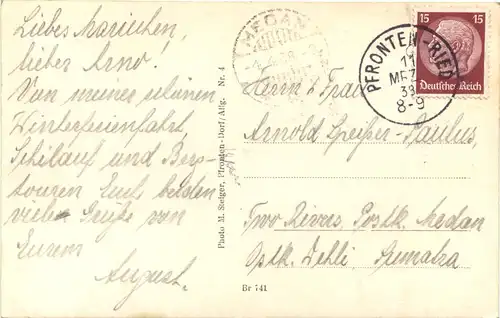 Liebes Mariechen,
lieber Arno!
Von meiner schönen
Winterferienfahrt,
Schilauf und Berg-
touren Euch beiden
viele Grüße von
Eurem
August.
Photo M. Steiger, Pfronten-Dorf/Allg. Nr. 4
MEDAN
PFRONTEN-RIED
11
MRZ
38
8-9
15 15
Deutsches Reich
Herrn u Frau
Arnold Speißer-Paulus,
Two Rivers, Postk. Medan
Ostk. Dehli Sumatra
Br 741